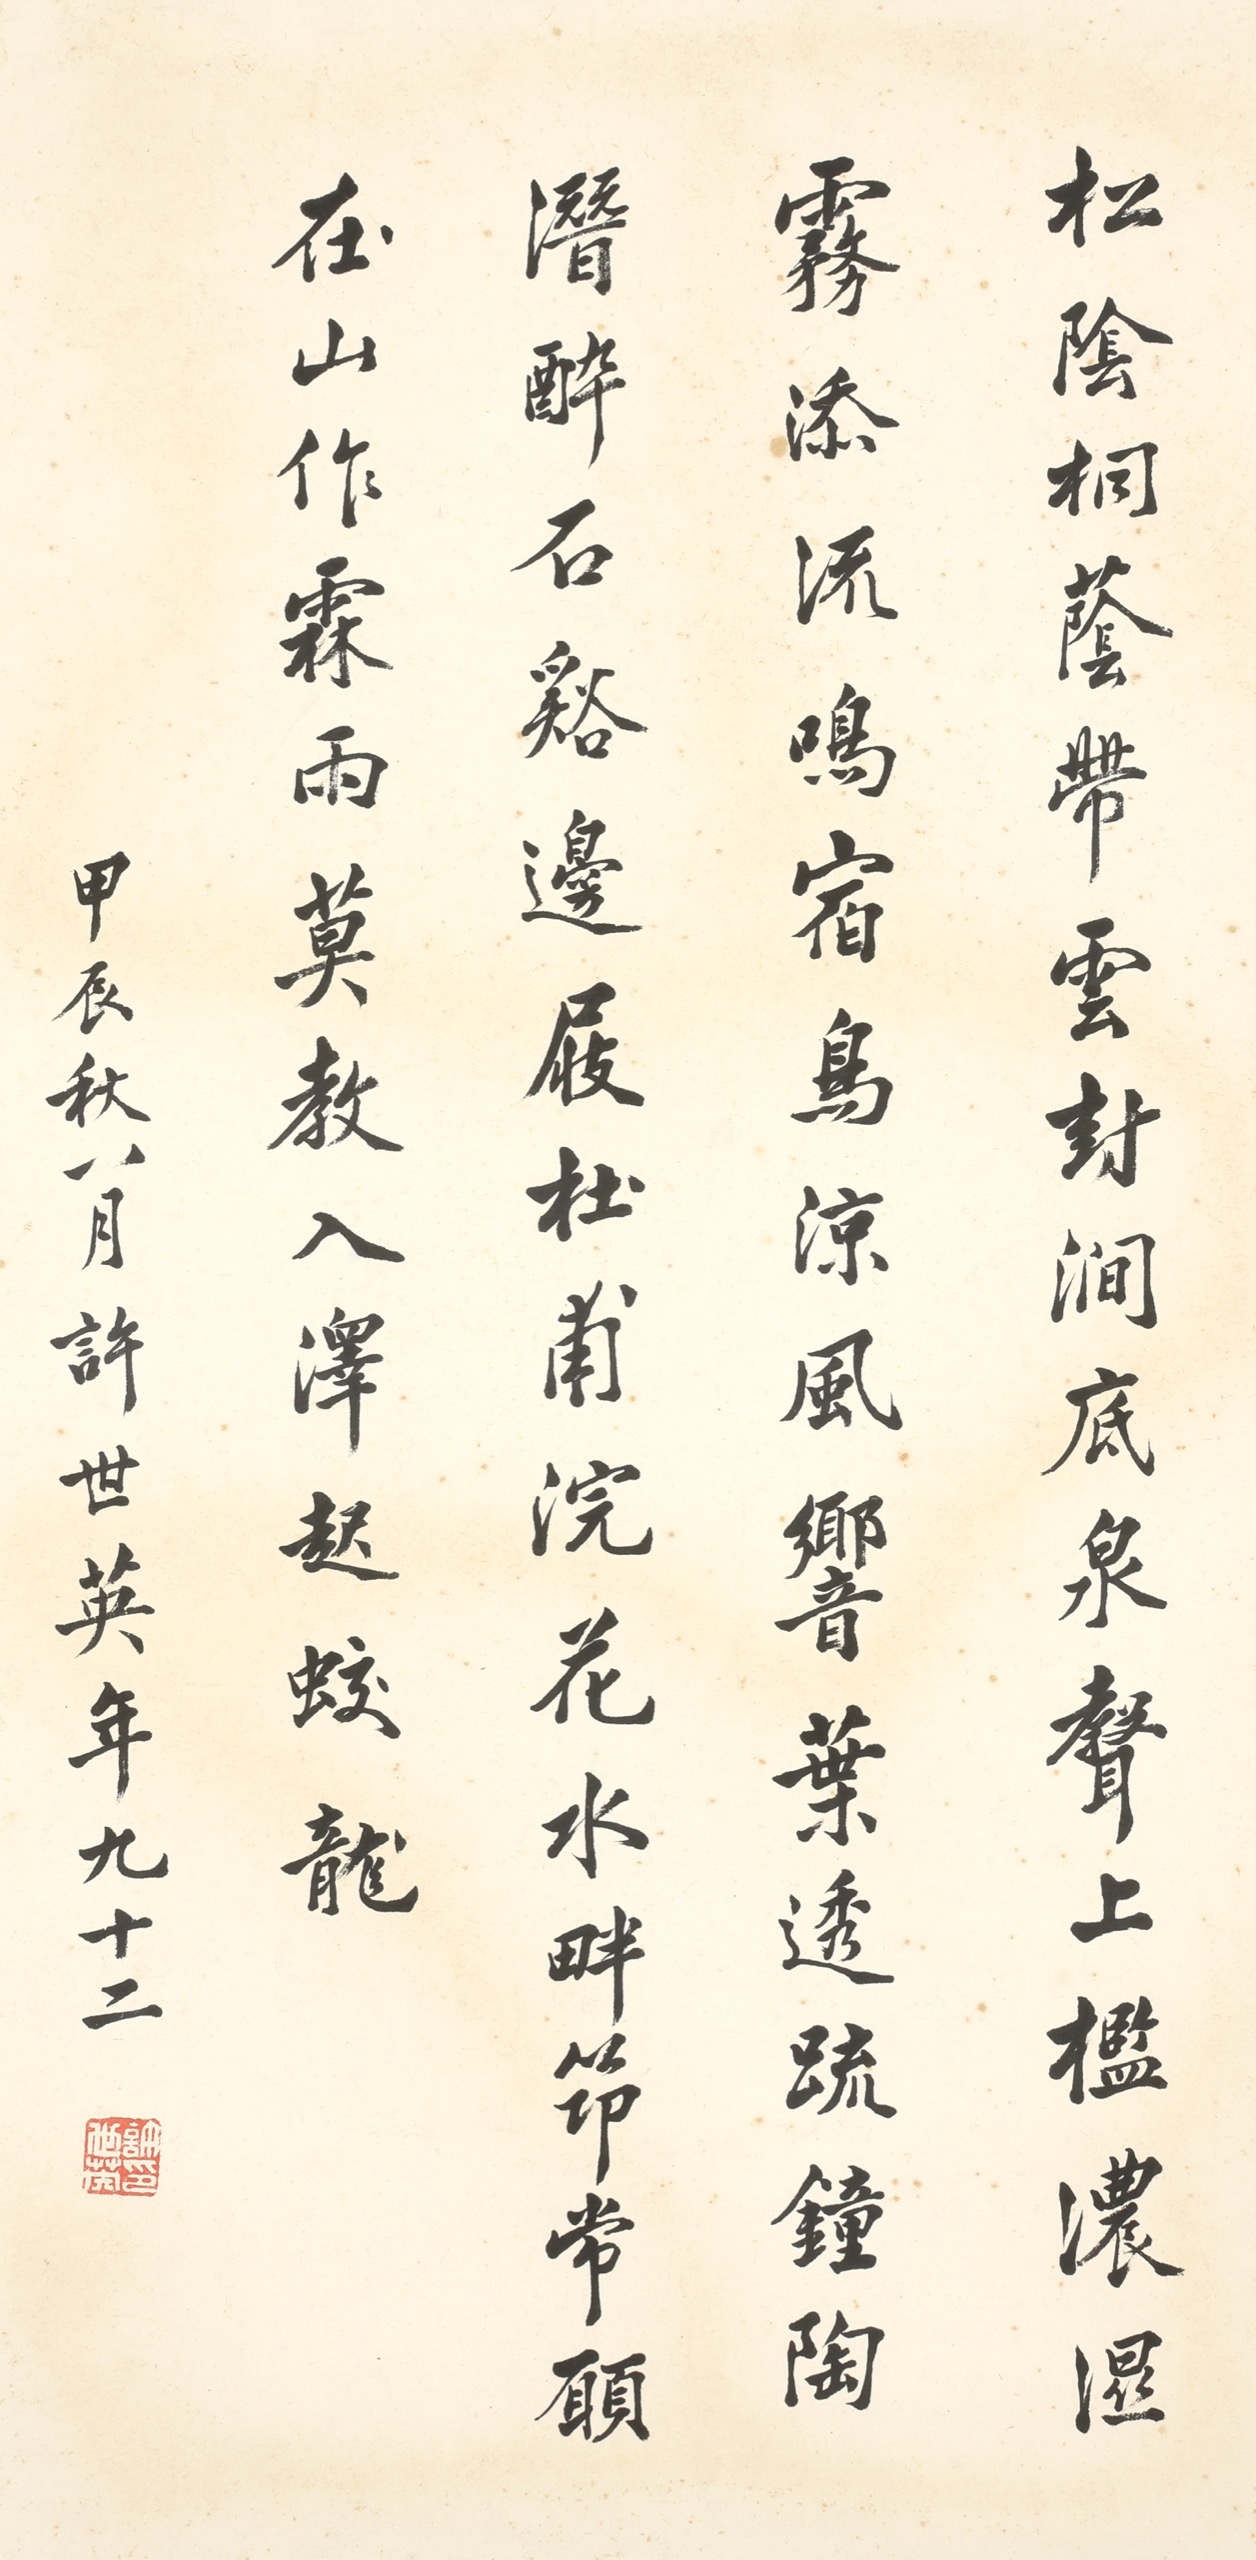 松陰桐蔭帶雲封澗底泉聲上檻濃濕
霧添流鳴宿鳥涼風響葉透疏鐘陶
潛醉石谿邊屐杜甫浣花水畔筇常願
在山作霖雨莫教入澤起蛟龍
甲辰秋八月許世英年九十二
許世英印